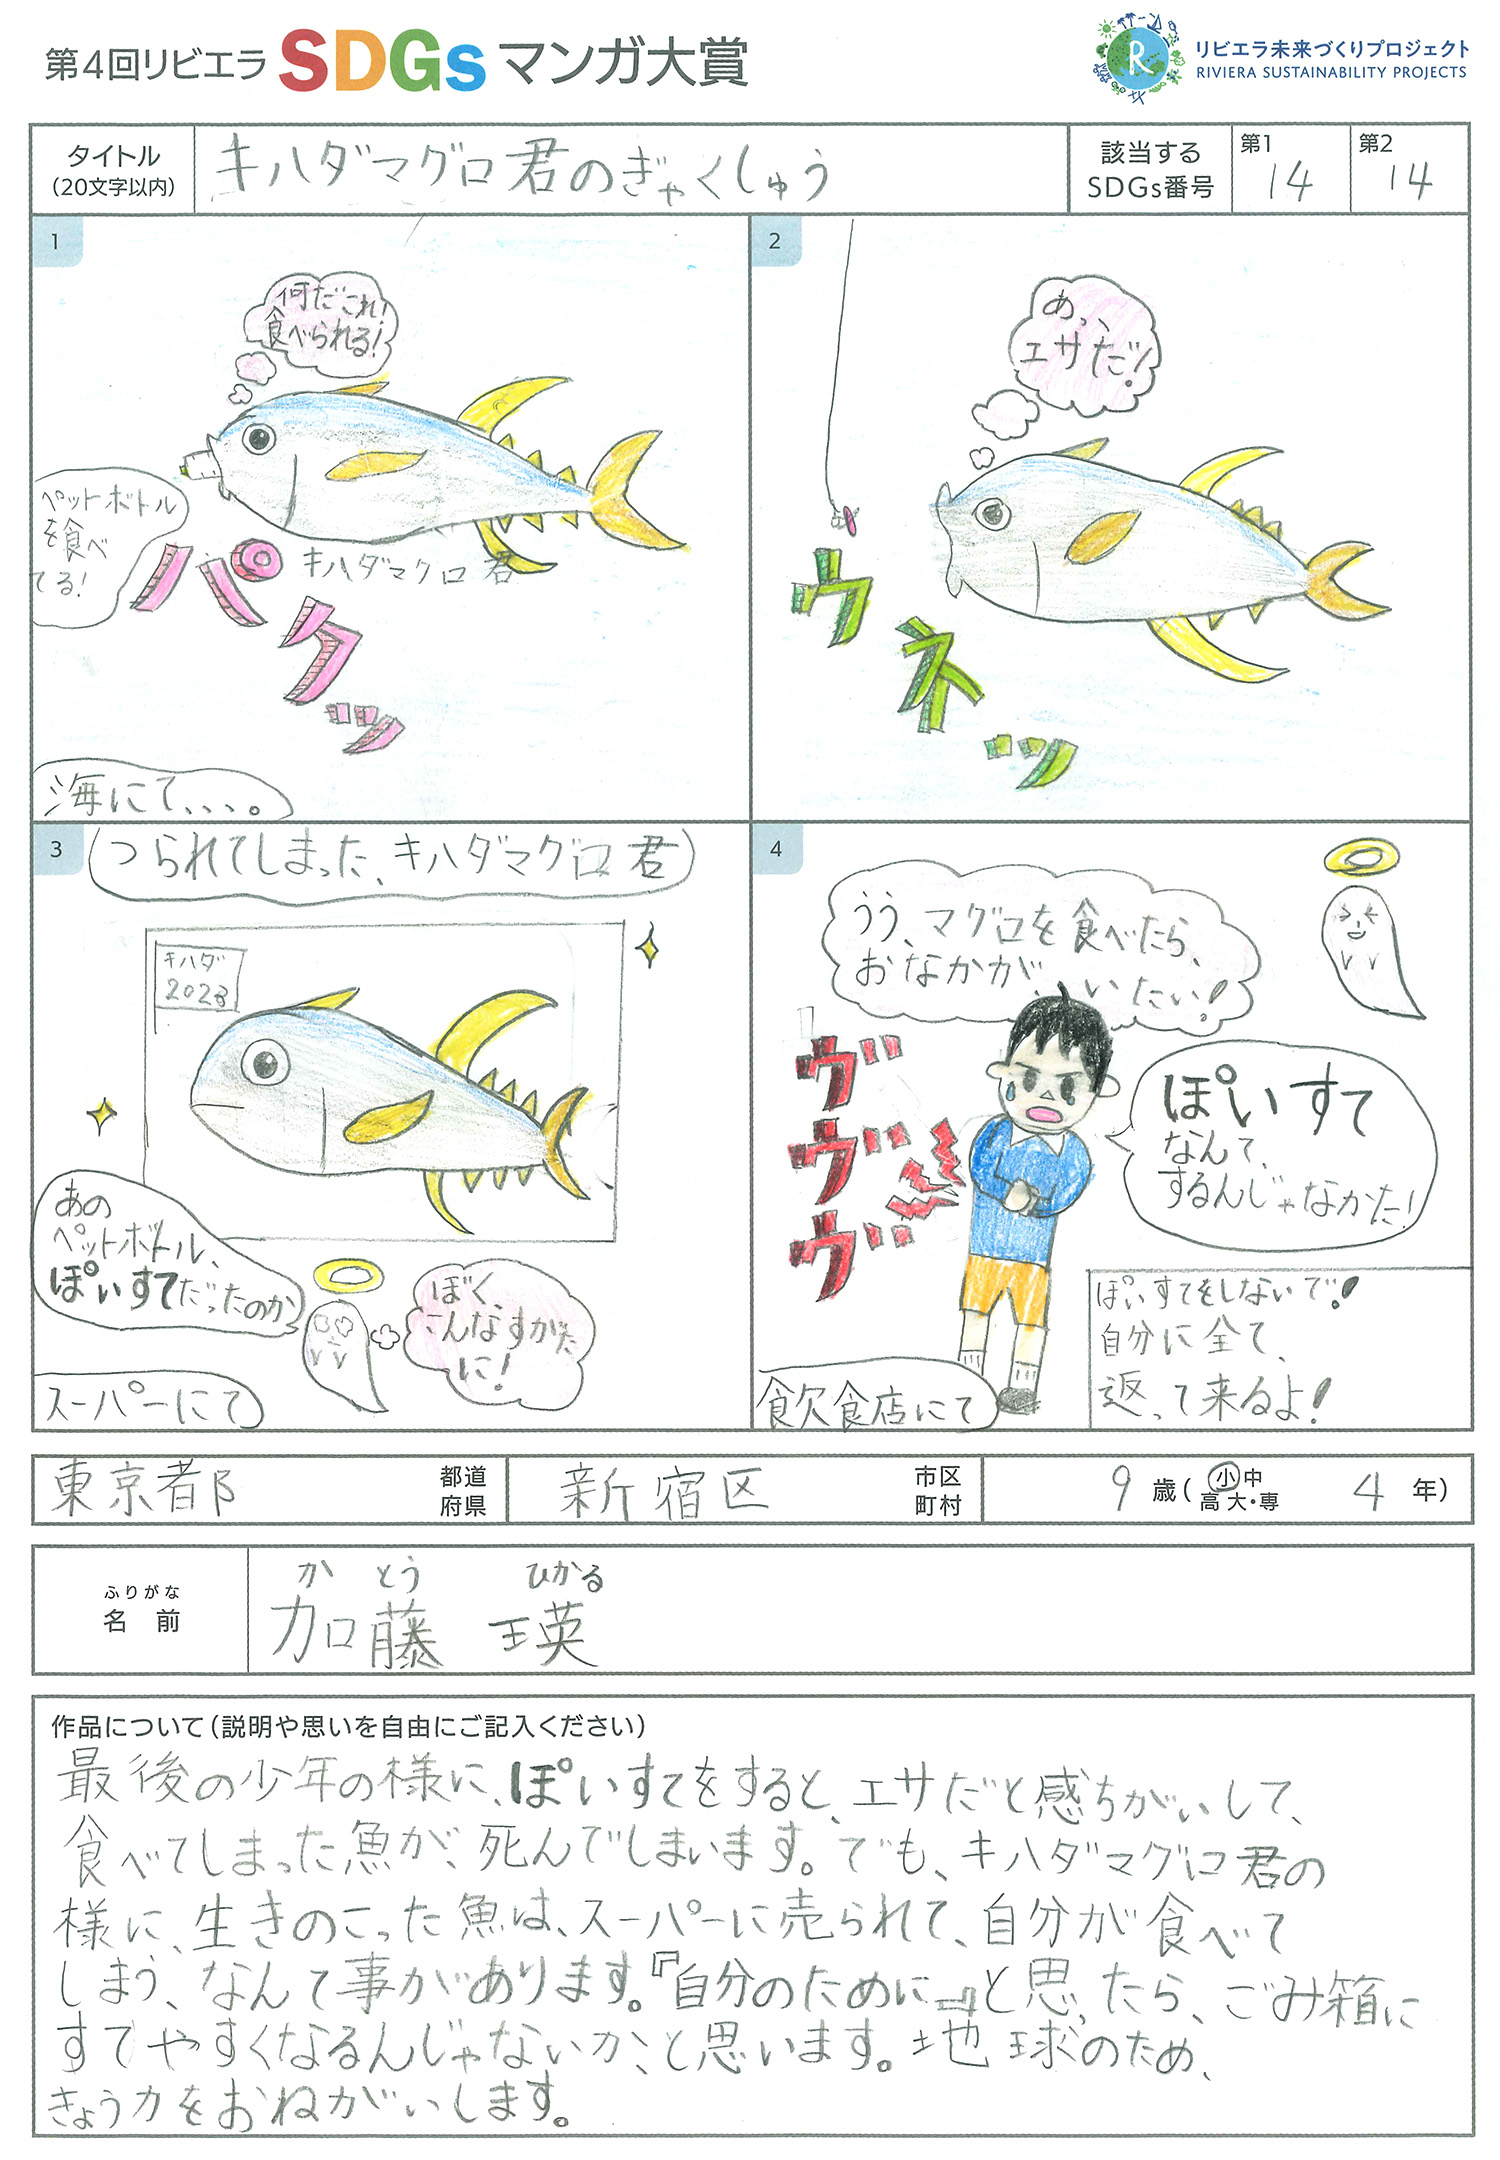 第4回リビエラ SDGs マンガ大賞
リビエラ未来づくりプロジェクト
RIVIERA SUSTAINABILITY PROJECTS
タイトル
(20文字以内)
キハダマグロ君のぎゃくしゅう
該当する
SDGs番号
第1
14
第2
14
1
何だこれ!
食べられる!
ペットボトル
を食べ
てる!
パクッ
キハダマグロ君
海にて、、、。
2
あっ、
エサだ!
ウネッ
3
つられてしまった、キハダマグロ君
キハダ
2023
あの
ペットボトル、
ぽいすてだったのか
ぼく、
こんなすがた
に!
スーパーにて
4
うう、マグロを食べたら、
おなかが、いたい!
ヴヴヴ
ぽいすて
なんて、
するんじゃなかた!
飲食店にて
ぽいすてをしないで!
自分に全て、
返って来るよ!
東京都
都道
府県
新宿区
市区
町村
9 歳(小中
高 大・専
4 年)
ふりがな
名 前
かとう ひかる
加藤 瑛
作品について(説明や思いを自由にご記入ください)
最後の少年の様に、ぽいすてをすると、エサだと感ちがいして、
食べてしまった魚が、死んでしまいます。でも、キハダマグロ君の
様に、生きのこった魚は、スーパーに売られて、自分が食べて
しまう、なんて事があります。『自分のために』と思ったら、ごみ箱に
すてやすくなるんじゃないか、と思います。地球のため、
きょう力をおねがいします。